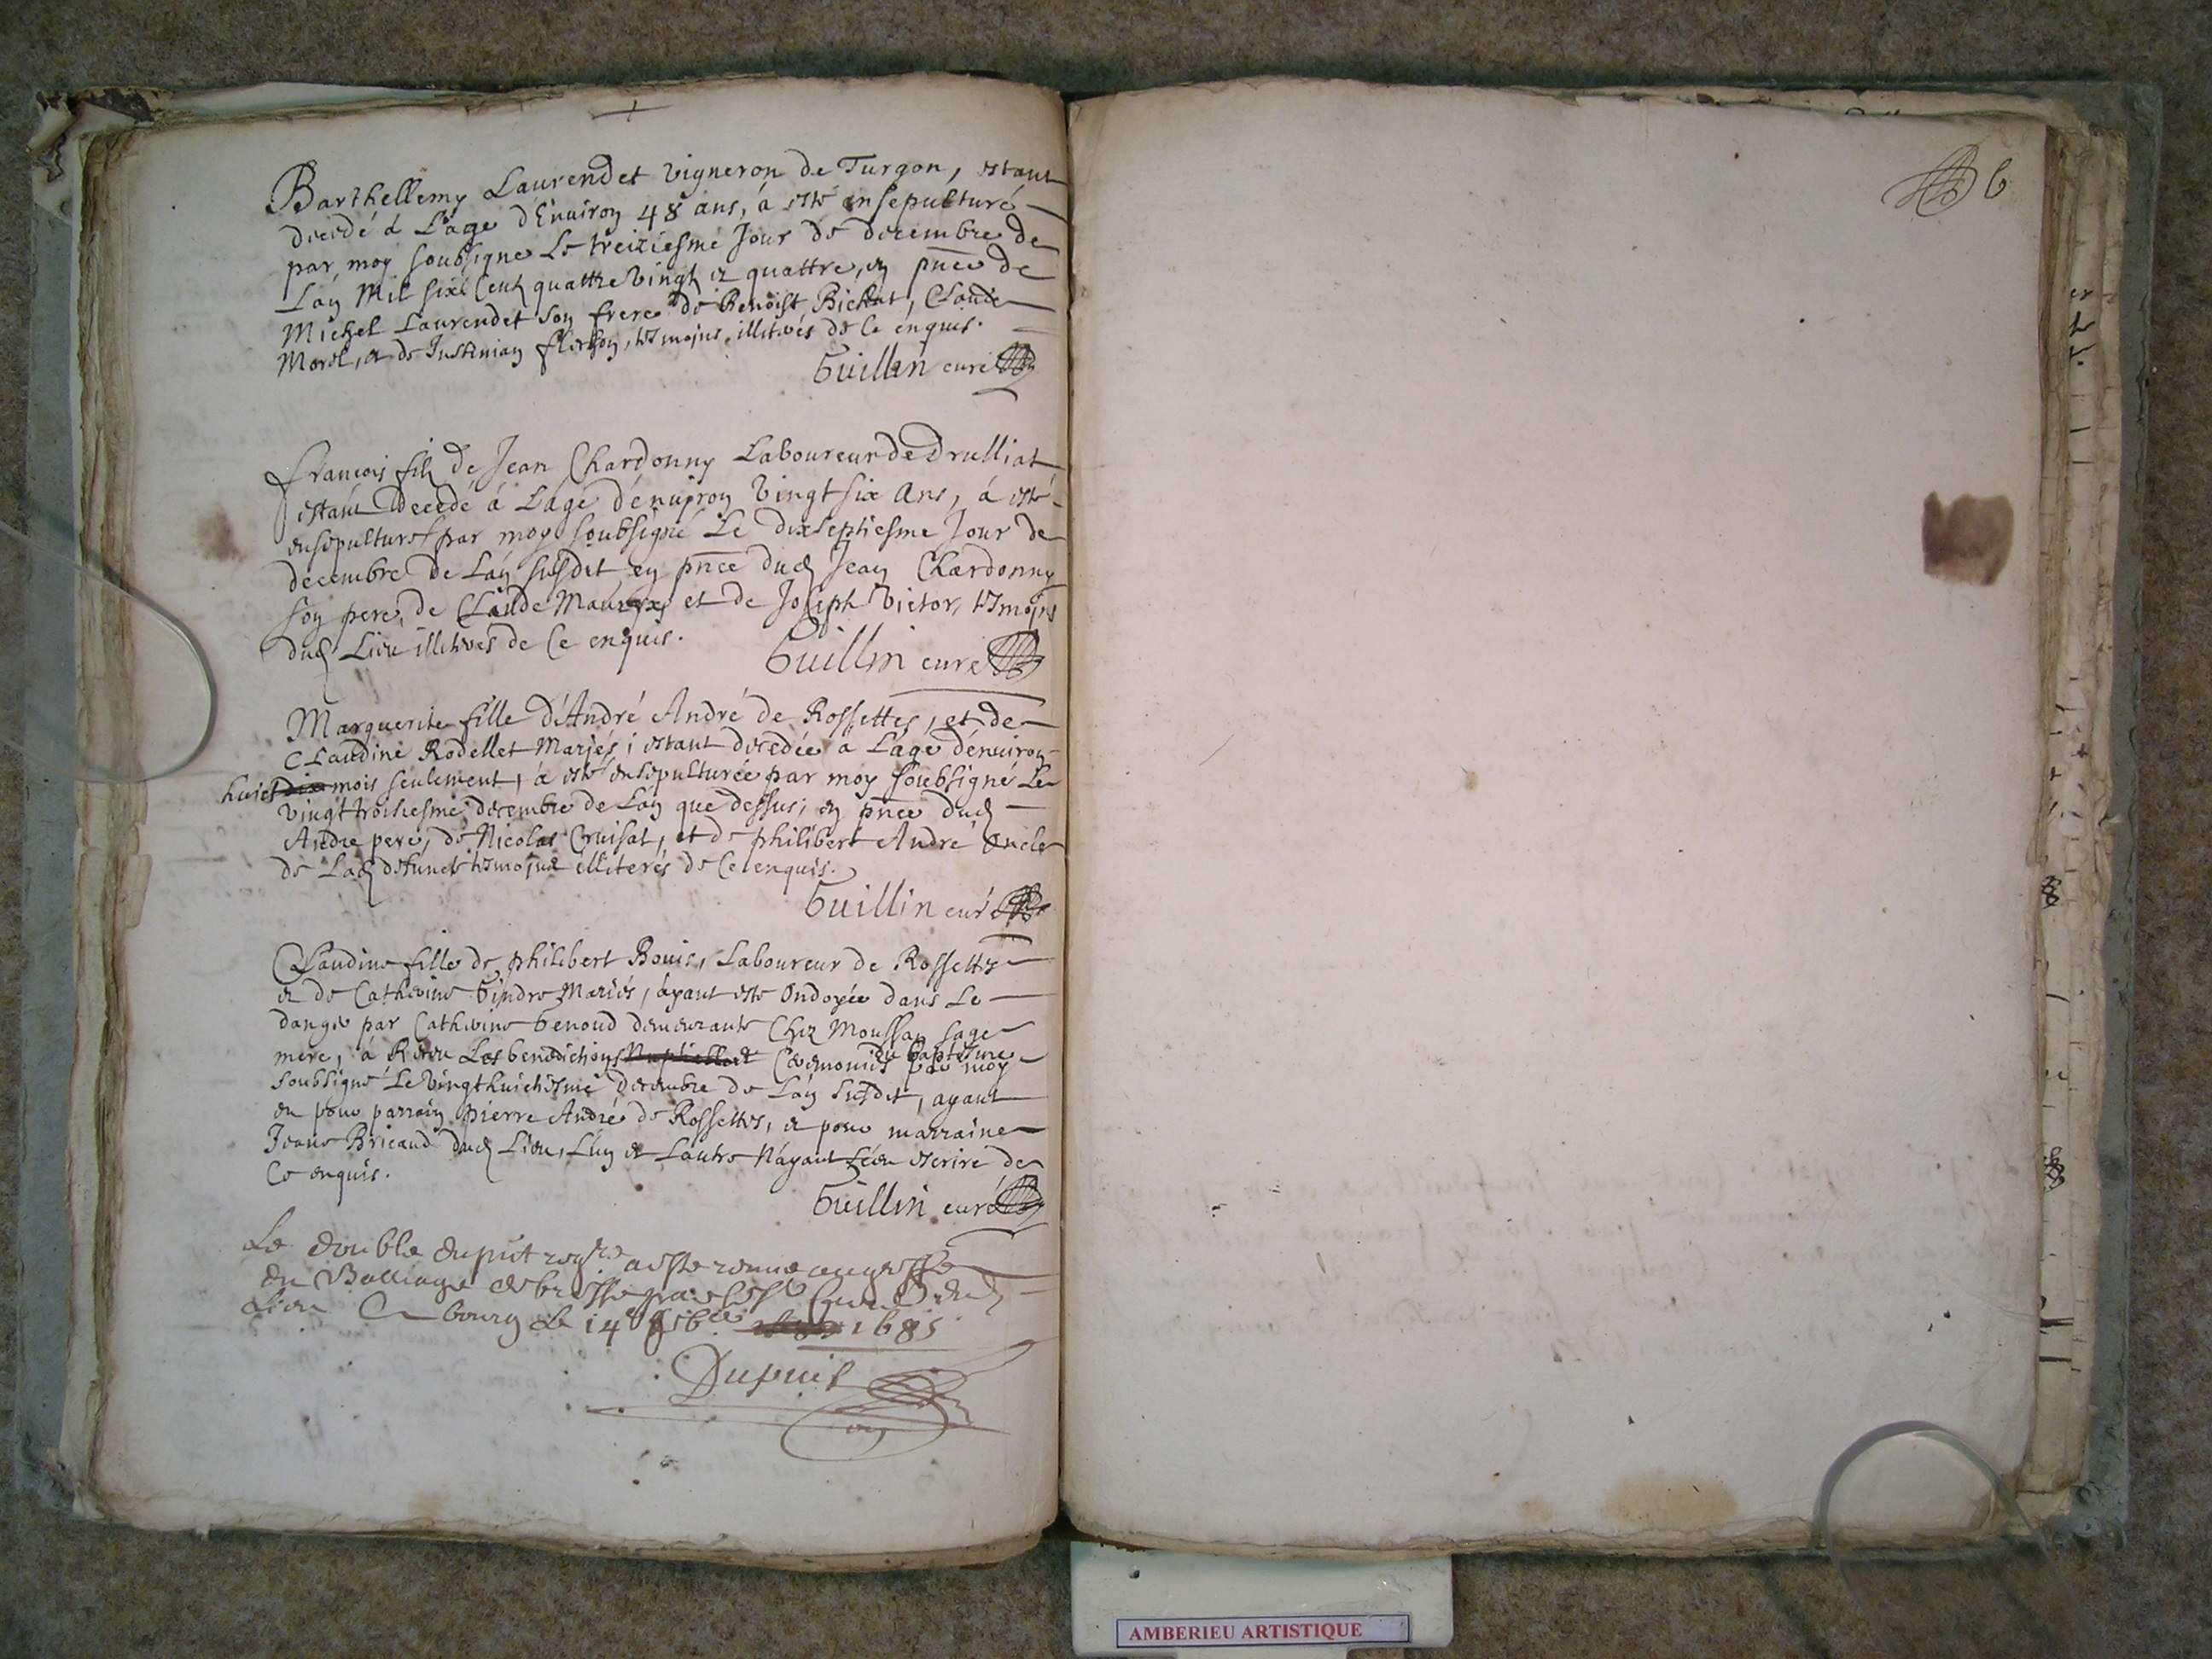 Barthellemy Laurendet vigneron de Turgon, estant
decedé á L'age d'Enuiron 48 ans, á esté ensepulturé
par moy soubsigné Le treiziesme Jour de decembre de
Lan Mil six Cent quattre vingt et quattre, en pnce de
Michel Laurendet son frere de Benoist Bichat, Claude
Morel, et de Justinian, tesmoins, illiterés de Ce enquis.
Guillin curé
francois filz de Jean Chardonny Laboureur de Drulliat
estant decedé á L'agé d'enuiron vingt six Ans, á esté
ensepulturé par moy soubsigné Le dixseptiesme Jour de
decembre de Lan susdit en pnce dud Jean Chardonny
son pere, de Claude et de Joseph Victor, tesmoins
dud Lieu illiterés de Ce enquis.
Guillin curé
Marguerite fille d'André André de Rossettes, et de
CLaudine Rodellet Mariés; estant decedée a L'agé d'enuiron
huict dix mois seulement, á esté ensepulturée par moy soubsigné Le
vingt troisiesme decembre de Lan que dessus, en pnce dud
Andre pere, de Nicolas Cruisat, et de philibert André Oncle
de Lad defuncte tesmoins illiterés de Ce enquis.
Guillin curé
Claudine fille de philibert Bouis, Laboureur de Rossettes
et de Catherine Gindre Mariés, áyant esté Ondoyée dans Le
danger par Catherine Genoud demeurante Chez Moussan sage
mere, á Receu Les benedictions Nuptialles Ceremonies du baptesme par moy
soubsigné Le vingthuictiesme decembre de Lan susdit, ayant
eu pour parrain pierre André de Rossettes, et pour marraine
Jeane Bricaud dud Lieu, L'un et Lautre N'áyant sceu escrire de
Ce enquis.
Guillin curé
Le double du pnt regre a esté remis au greffe
du Balliage de bresse par
Lieu A bourg Le 14 1685
Dupuis
6
AMBERIEU ARTISTIQUE